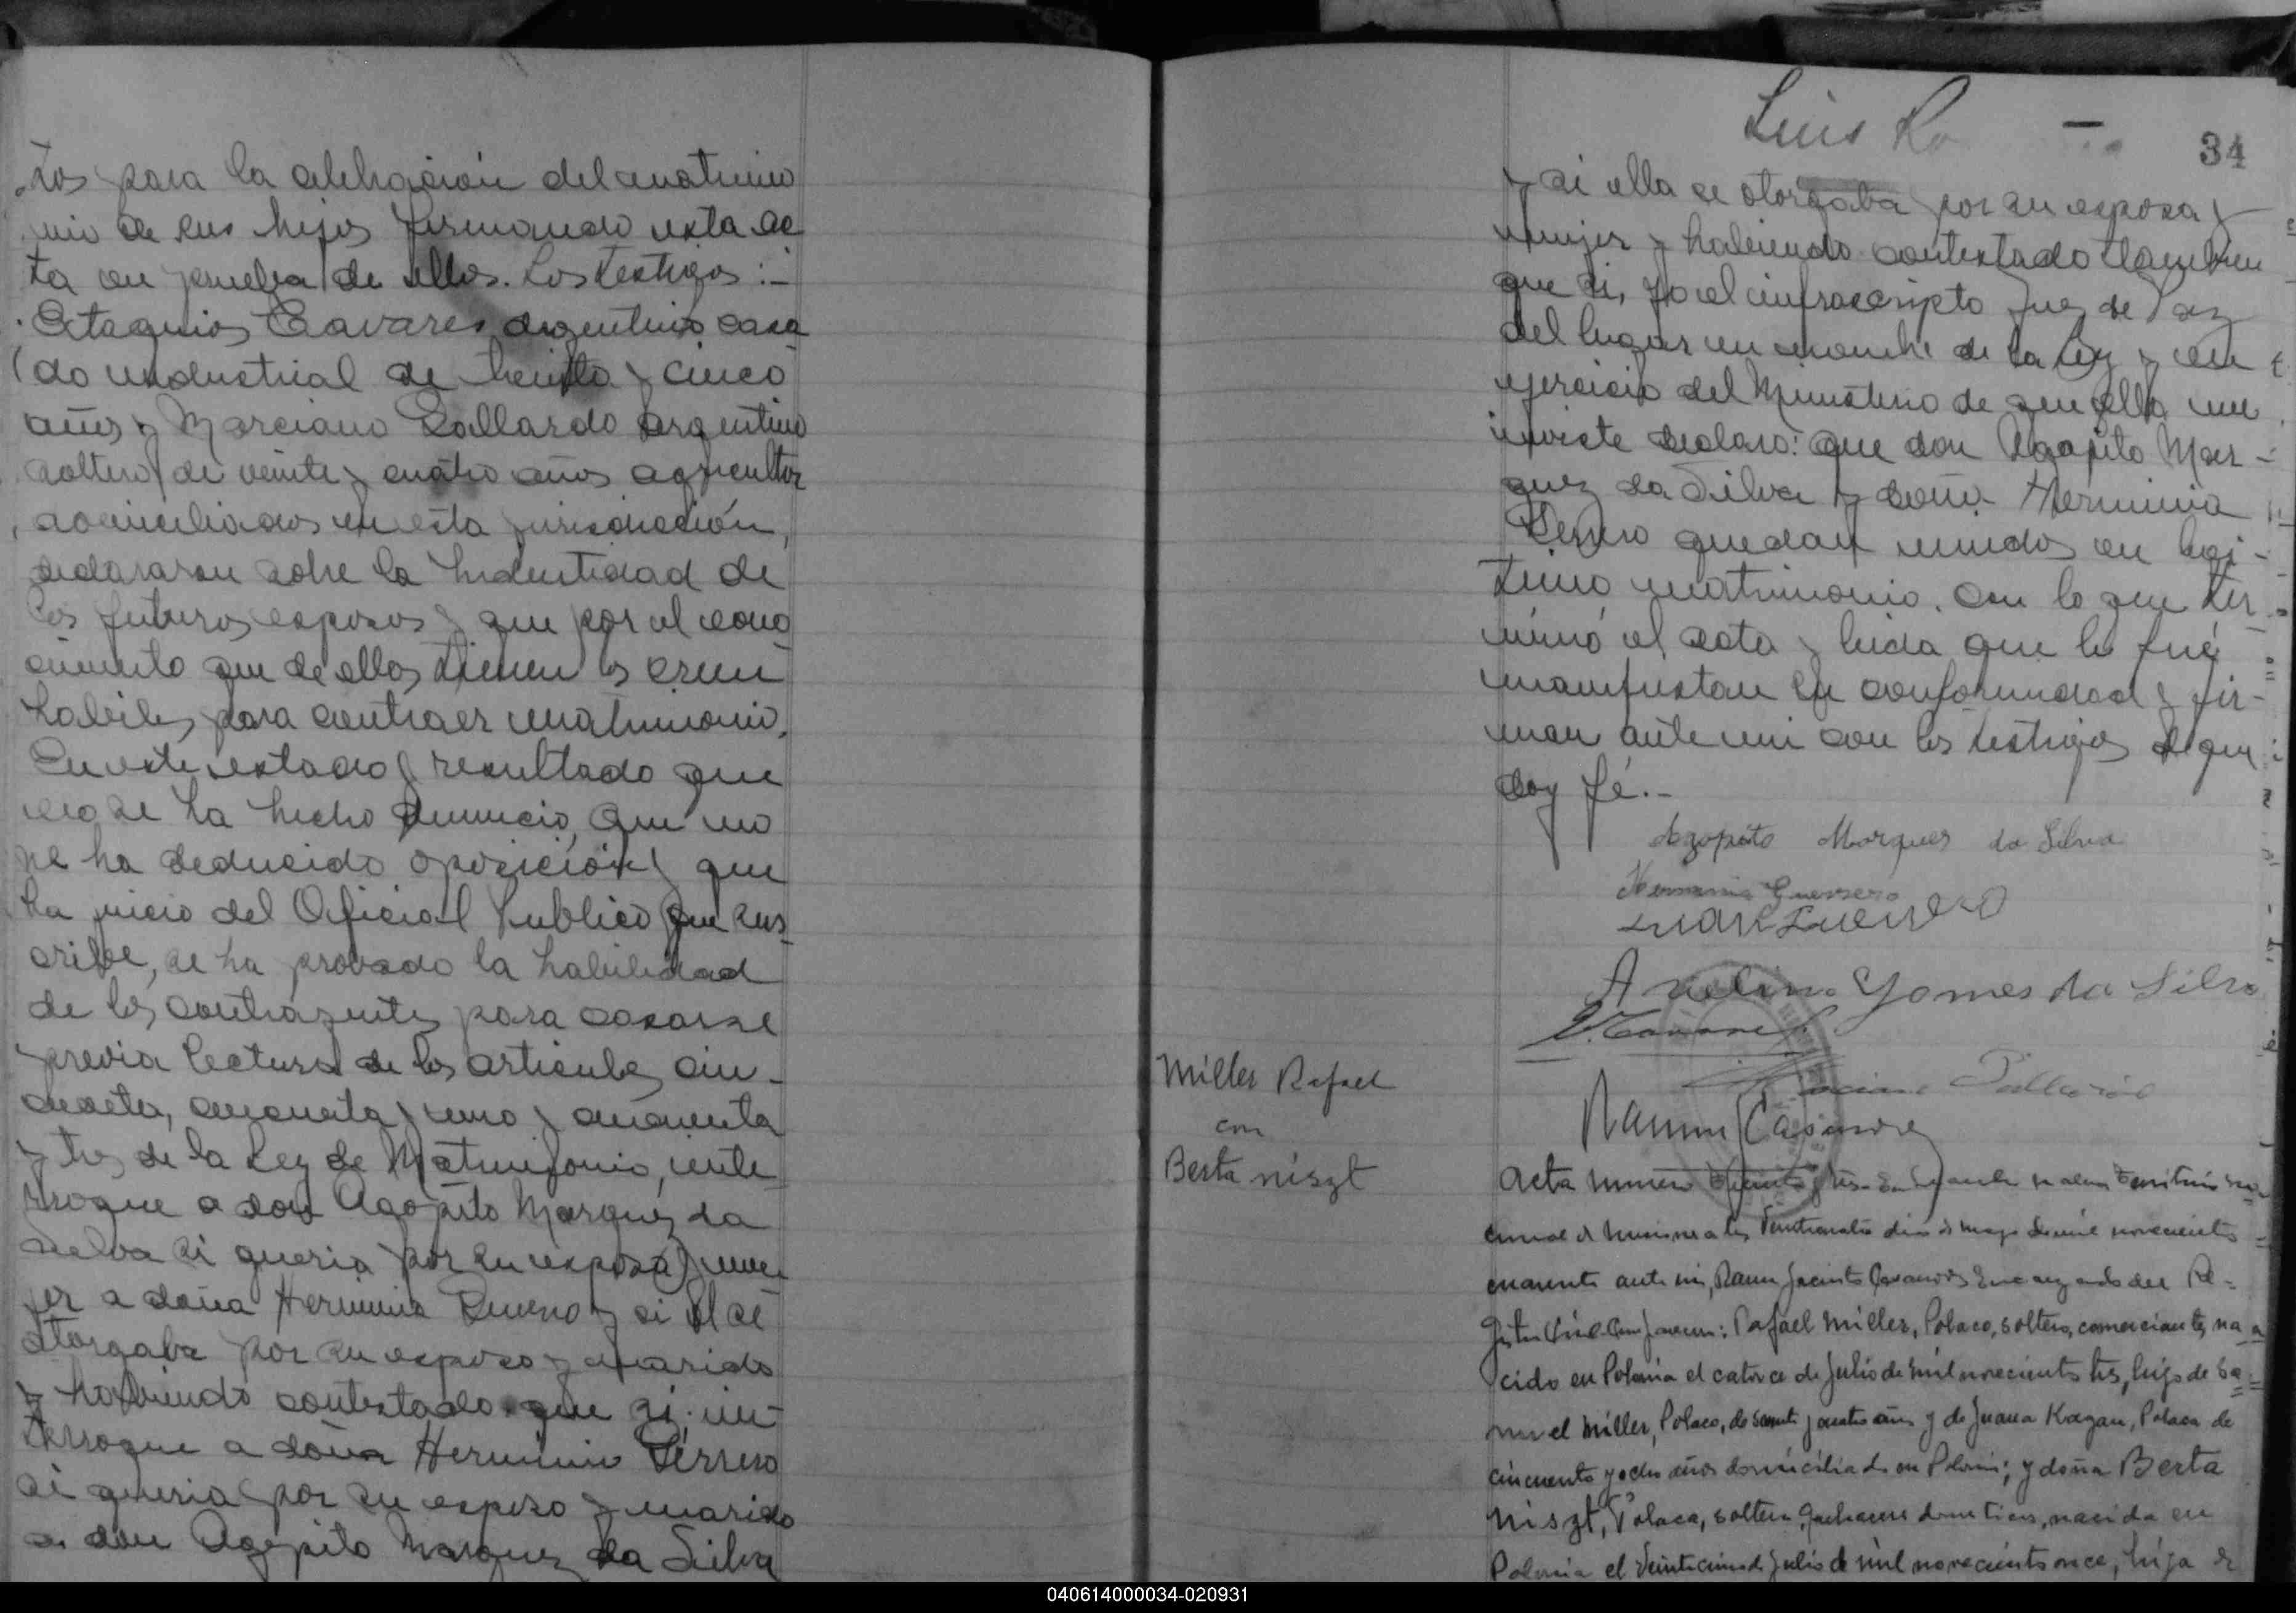 tos para la celebración del matrimo
nio de sus hijos firmando esta ac
ta en prueba de ellos. Los testigos:-
Eustaquio Tavares argentino casa
do industrial de treinta y cinco
años y Marciano Gallardo argentino
soltero de veinte y cuatro años agricultor
domiciliados en esta jurisdicción,
declararon sobre la hidentidad de
los futuros esposos y que por el cono
cimiento que de ellos tienen los creen
habiles para contraer matrimonio.
En este estado y resultado que
no se ha hecho denuncia, que no
se ha deducido oposición y que
ha juicio del Oficial Publico que sus
cribe, se ha probado la habilidad
de los contrayentes para casarse
previa lectura de los articulos cin-
cuenta, cincuenta y uno y cincuenta
y tres de la Ley de Matrimonio, inte
rrogue a don Agapito Marquez da
Silva si queria por su esposa y mu
jer a doña Herminia y si el se
otorgaba por su esposo y marido
y habiendo contestado que si in-
terrogue a doña Herminia
si queria por su esposo y marido
a don Agapito Marquez da Silva
Luis
34
y si ella se otorgaba por su esposa y
mujer y habiendo contestado tambien
que si, yo el infrascripto Juez de Paz
del lugar en nombre de la Ley y en
ejercicio del Ministerio de que ella me
inviste declaro: que don Agapito Mar-
quez da Silva y doña Herminia
quedan unidos en legi-
timo matrimonio. Con lo que ter
minó el acta y leida que le fué
manifiestan su conformidad y fir-
man ante mi con los testigos de que
doy fé.-
Agapito Marques da Silva
Herminia Guerrero
Juan Guerrero
Avelino Gomes da Silva
E. Tavares
Gallardo
Ramon Casanova
Miller Rafael
con
Berta niszt
Acta numero treinta y tres. En Territorio na
cional de Misiones a los Veinticuatro dias de mayo de mil novecientos
cuarenta ante mi, Ramon Jacinto Casanova Encargado del Re=
gistro Civil Comparecen: Rafael Miller, Polaco, soltero, comerciante, na
cido en Polonia el catorce de Julio de mil novecientos tres, hijo de Sa=
muel Miller, Polaco, de sesenta y cuatro años y de Juana Kagan, Polaca de
cincuenta y ocho años domiciliados en Polonia; y doña Berta
niszt, Polaca, soltera, quehaceres domesticos, nacida en
Polonia el veinticinco de Julio de mil novecientos once, hija de
040614000034-020931